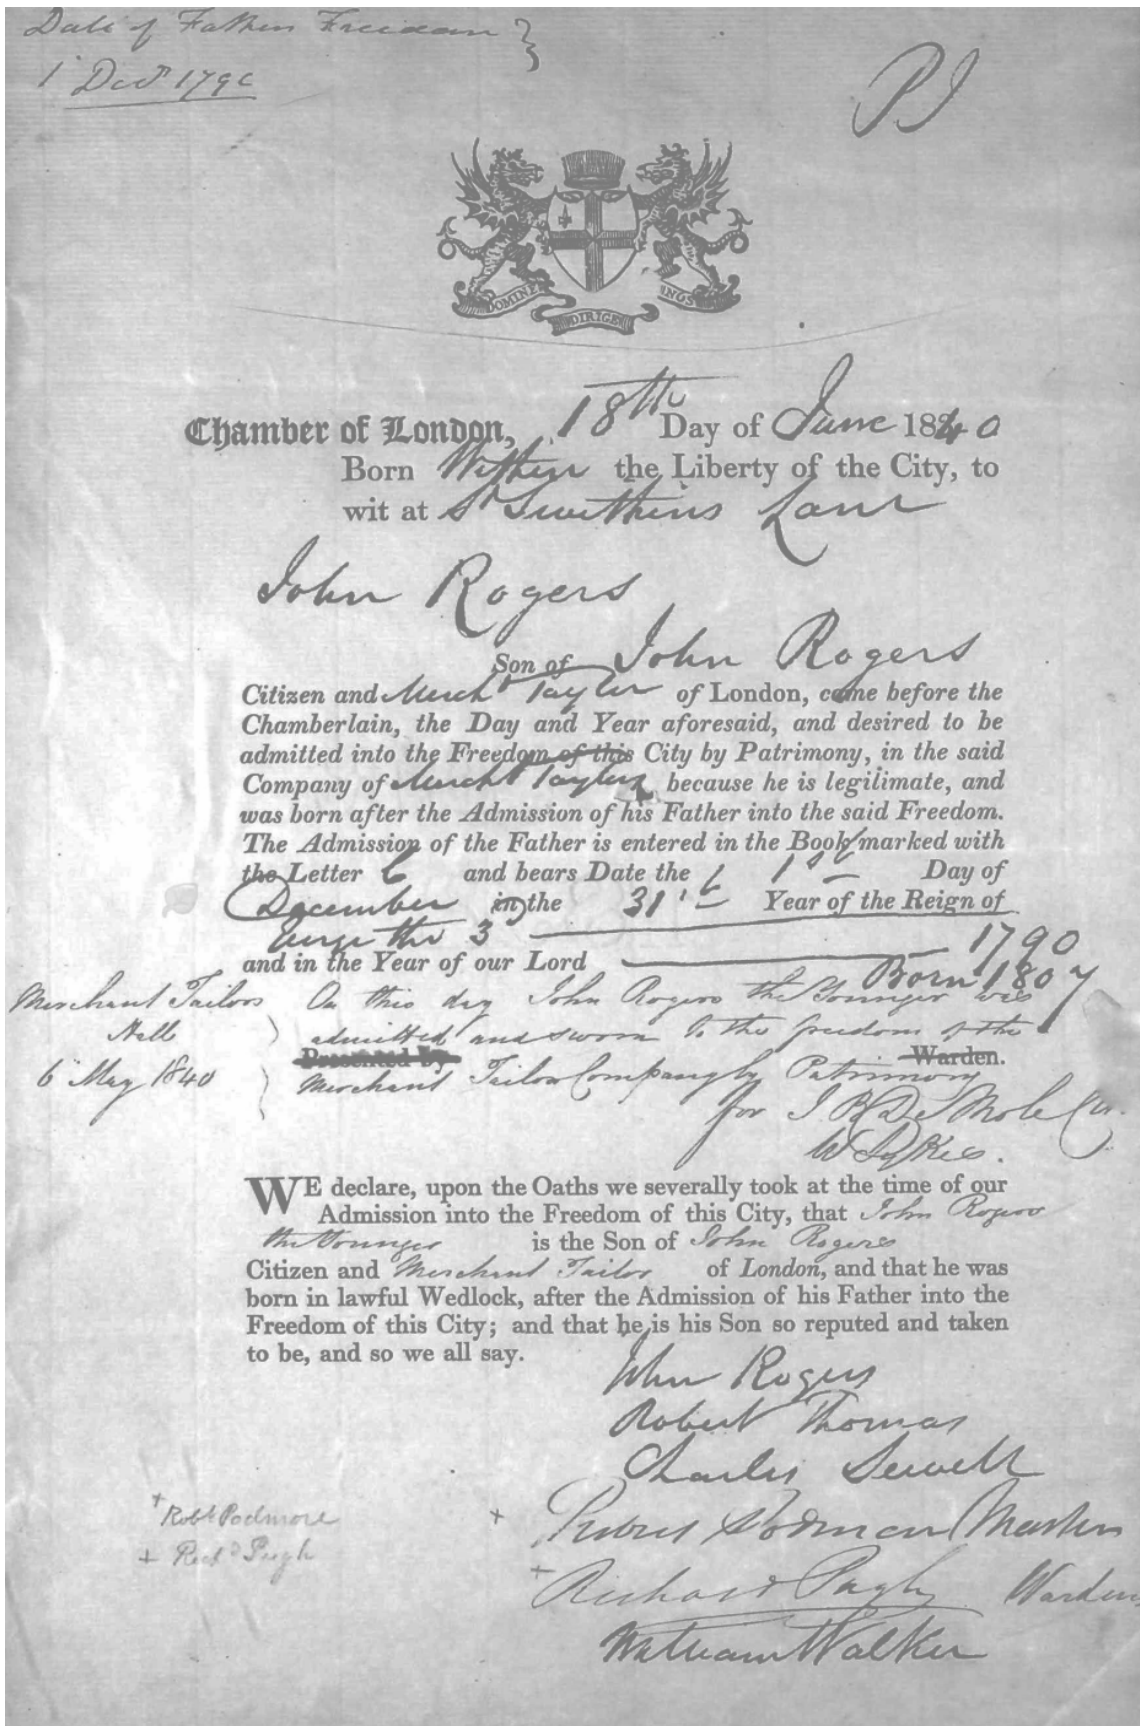 Date of Fathers Freedom }
1 Decr 1790
PJ
DOMINE DIRIGE NOS
Chamber of London, 18th Day of June 1840
Born Within the Liberty of the City, to
wit at St Swithins Lane
John Rogers
Son of John Rogers
Citizen and Mercht Taylor of London, came before the
Chamberlain, the Day and Year aforesaid, and desired to be
admitted into the Freedom of this City by Patrimony, in the said
Company of Mercht Taylors because he is legitimate, and
was born after the Admission of his Father into the said Freedom.
The Admission of the Father is entered in the Book marked with
the Letter C and bears Date the 1st Day of
December in the 31st Year of the Reign of
George the 3
and in the Year of our Lord 1790
Born 1807
Merchant Tailors Hall
6 May 1840
On this day John Rogers the Younger was
admitted and sworn to the freedom of the
Presented by Warden.
Merchant Tailor Company by Patrimony
for J B De Mole
W Sykes.
WE declare, upon the Oaths we severally took at the time of our
Admission into the Freedom of this City, that John Rogers
the Younger is the Son of John Rogers
Citizen and Merchant Tailor of London, and that he was
born in lawful Wedlock, after the Admission of his Father into the
Freedom of this City; and that he is his Son so reputed and taken
to be, and so we all say.
John Rogers
Robert Thomas
Charles Sewell
+ Robt Podmore
+ Richd Pugh
+ Podmore Master
+ Richard Pugh Warden
William Walker